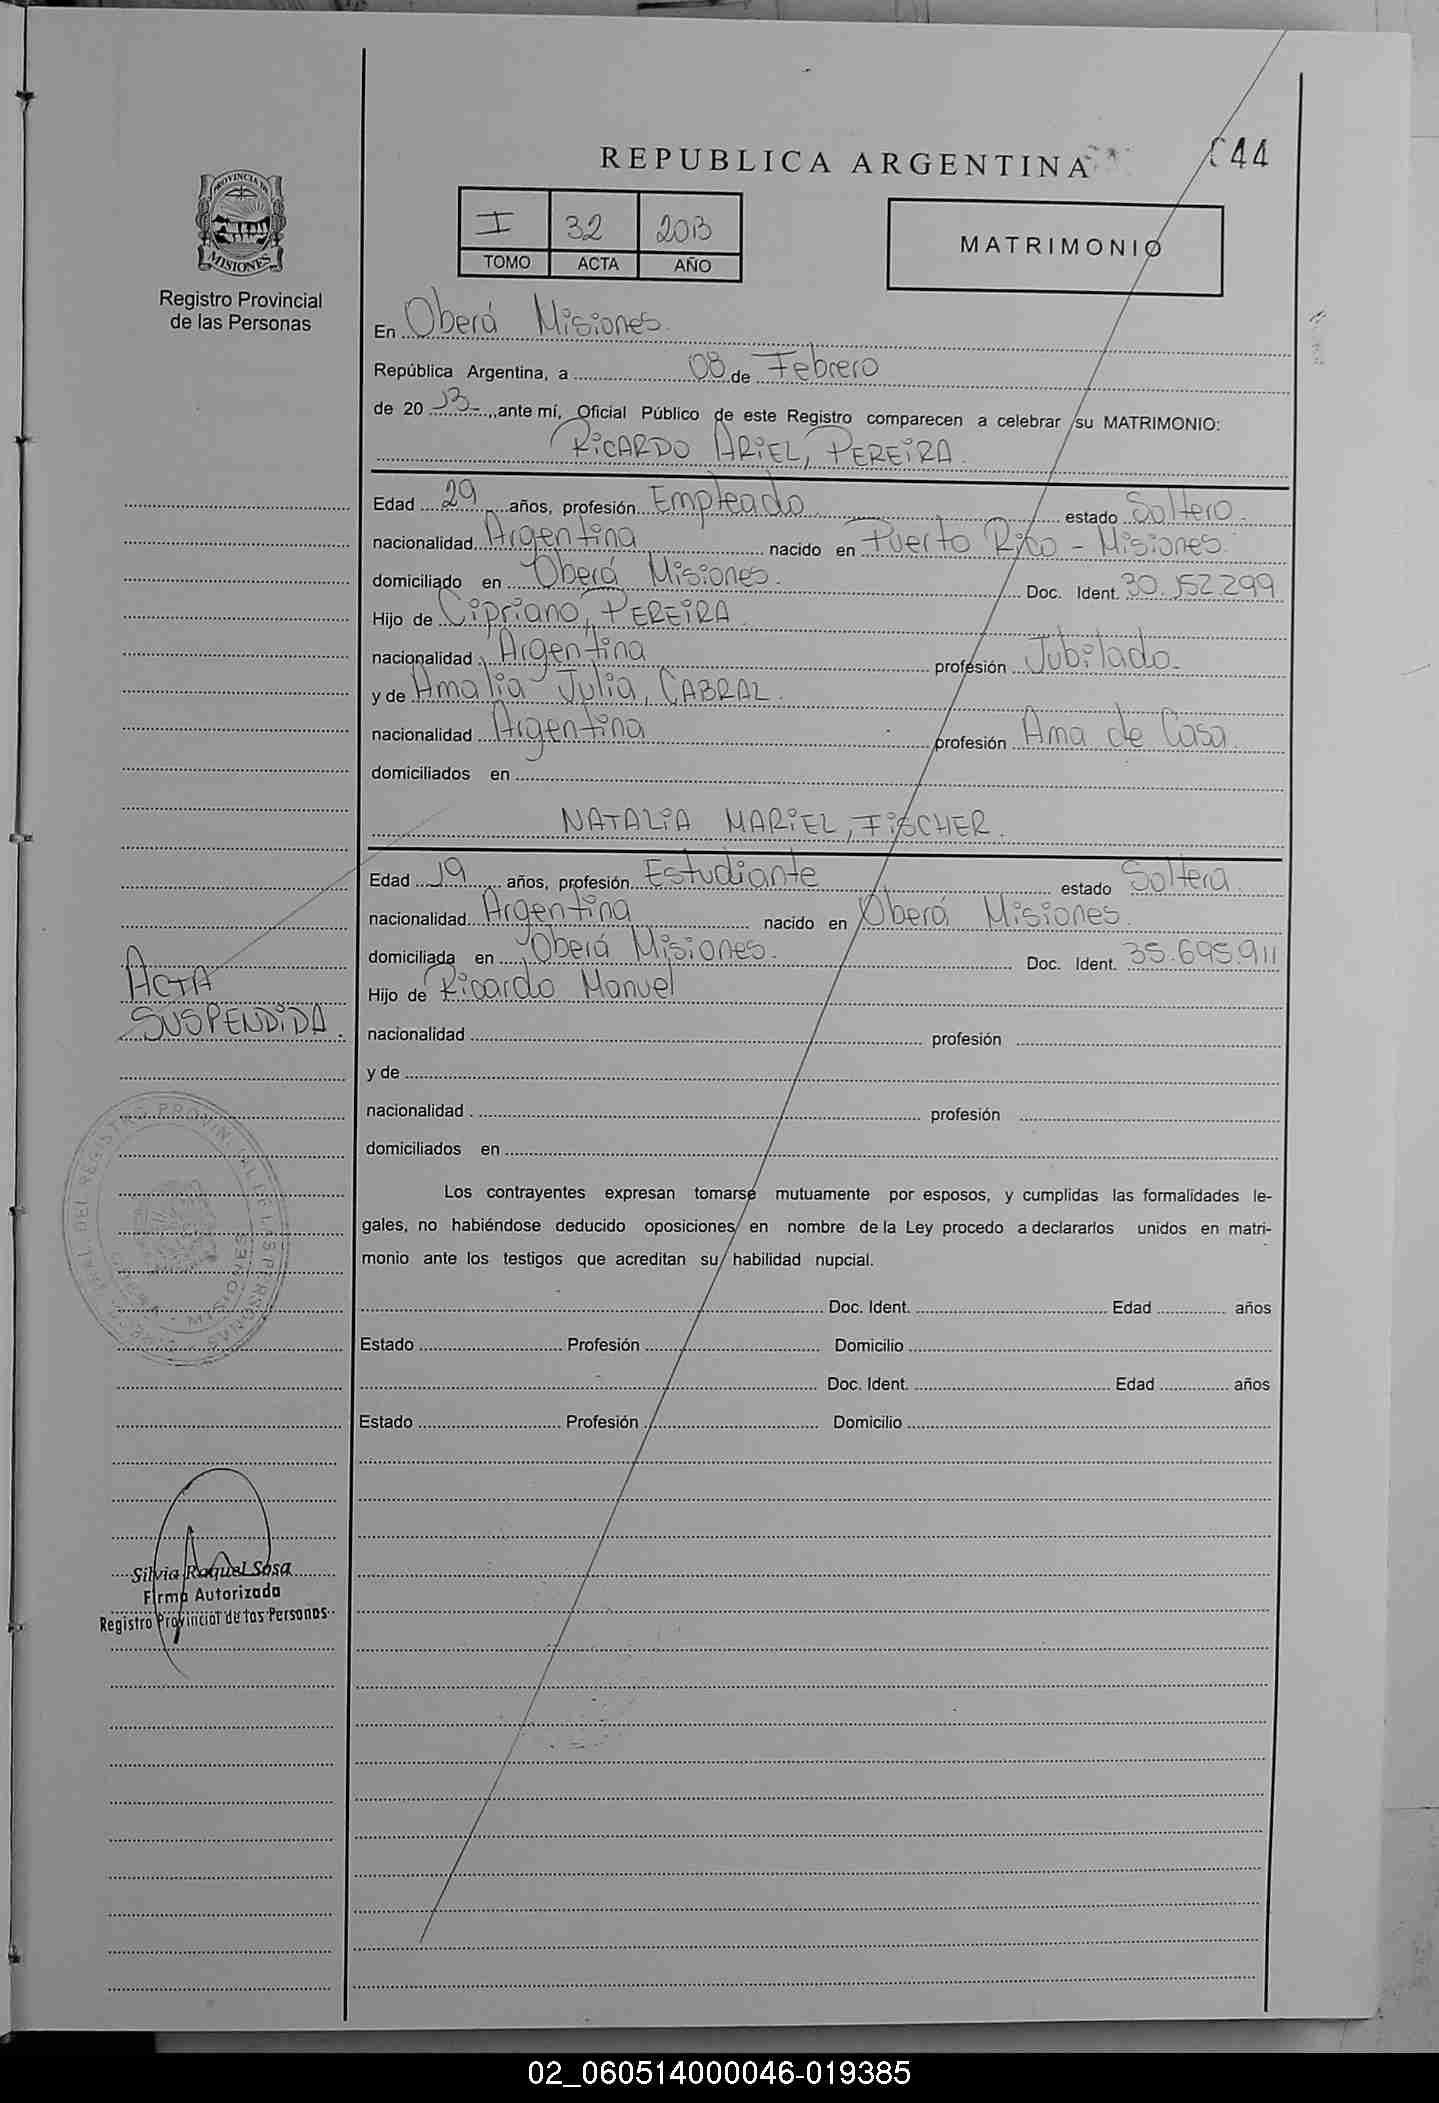 REPUBLICA ARGENTINA
44
PROVINCIA DE
MISIONES
Registro Provincial
de las Personas
I 32 2013
TOMO ACTA AÑO
MATRIMONIO
En Oberá Misiones.
República Argentina, a 08 de Febrero
de 20 13 ante mí, Oficial Público de este Registro comparecen a celebrar su MATRIMONIO:
RICARDO ARIEL, PEREIRA.
Edad 29 años, profesión Empleado estado Soltero.
nacionalidad Argentina nacido en Puerto Rico - Misiones.
domiciliado en Oberá Misiones. Doc. Ident. 30.152.299
Hijo de Cipriano, PEREIRA.
nacionalidad Argentina profesión Jubilado.
y de Amalia Julia, CABRAL.
nacionalidad Argentina profesión Ama de Casa.
domiciliados en
NATALIA MARIEL, FISCHER.
Edad 19 años, profesión Estudiante estado Soltera
nacionalidad Argentina nacido en Oberá Misiones.
domiciliada en Oberá Misiones. Doc. Ident. 35.695.911
Hijo de Ricardo Manuel
nacionalidad profesión
y de
nacionalidad profesión
domiciliados en
ACTA
SUSPENDIDA.
Los contrayentes expresan tomarse mutuamente por esposos, y cumplidas las formalidades le-
gales, no habiéndose deducido oposiciones en nombre de la Ley procedo a declararlos unidos en matri-
monio ante los testigos que acreditan su habilidad nupcial.
Doc. Ident. Edad años
Estado Profesión Domicilio
Doc. Ident. Edad años
Estado Profesión Domicilio
Silvia Raquel Sosa
Firma Autorizada
Registro Provincial de las Personas
02_060514000046-019385